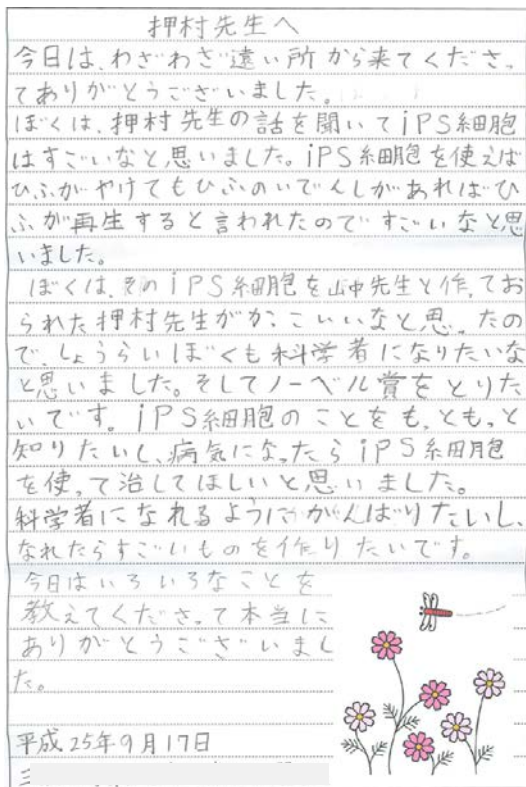 押村先生へ
今日は、わざわざ遠い所から来てくださっ
てありがとうございました。
ぼくは、押村先生の話を聞いてiPS細胞
はすごいなと思いました。iPS細胞を使えば
ひふがやけてもひふのいでんしがあればひ
ふが再生すると言われたのですごいなと思
いました。
ぼくは、そのiPS細胞を山中先生と作ってお
られた押村先生がかっこいいなと思ったの
で、しょうらいぼくも科学者になりたいな
と思いました。そしてノーベル賞をとりた
いです。iPS細胞のことをも、とも、と
知りたいし、病気になったらiPS細胞
を使って治してほしいと思いました。
科学者になれるようにがんばりたいし、
なれたらすごいものを作りたいです。
今日はいろいろなことを
教えてくださって本当に
ありがとうございまし
た。
平成25年9月17日
三